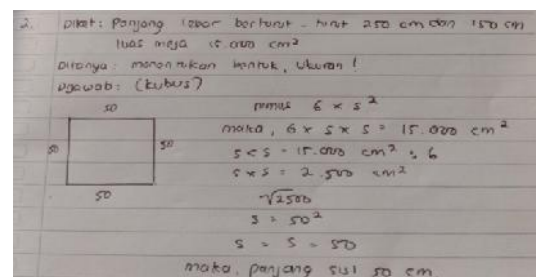 2. Diket: Panjang lebar berturut-turut 250 cm dan 150 cm
luas meja 15.000 cm²
Ditanya: menentukan bentuk, ukuran!
Dijawab: (kubus)
50
50
50
50
rumus 6 x s²
maka, 6 x s x s = 15.000 cm²
s x s = 15.000 cm² : 6
s x s = 2.500 cm²
√2500
s = 50²
s = s = 50
maka, panjang sisi 50 cm